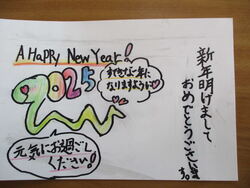 A HAPPY NEW YEAR!
2025
すてきな一年に
なりますように♡
元気にお過ごし
ください!
新年明けまして
おめでとうございます。